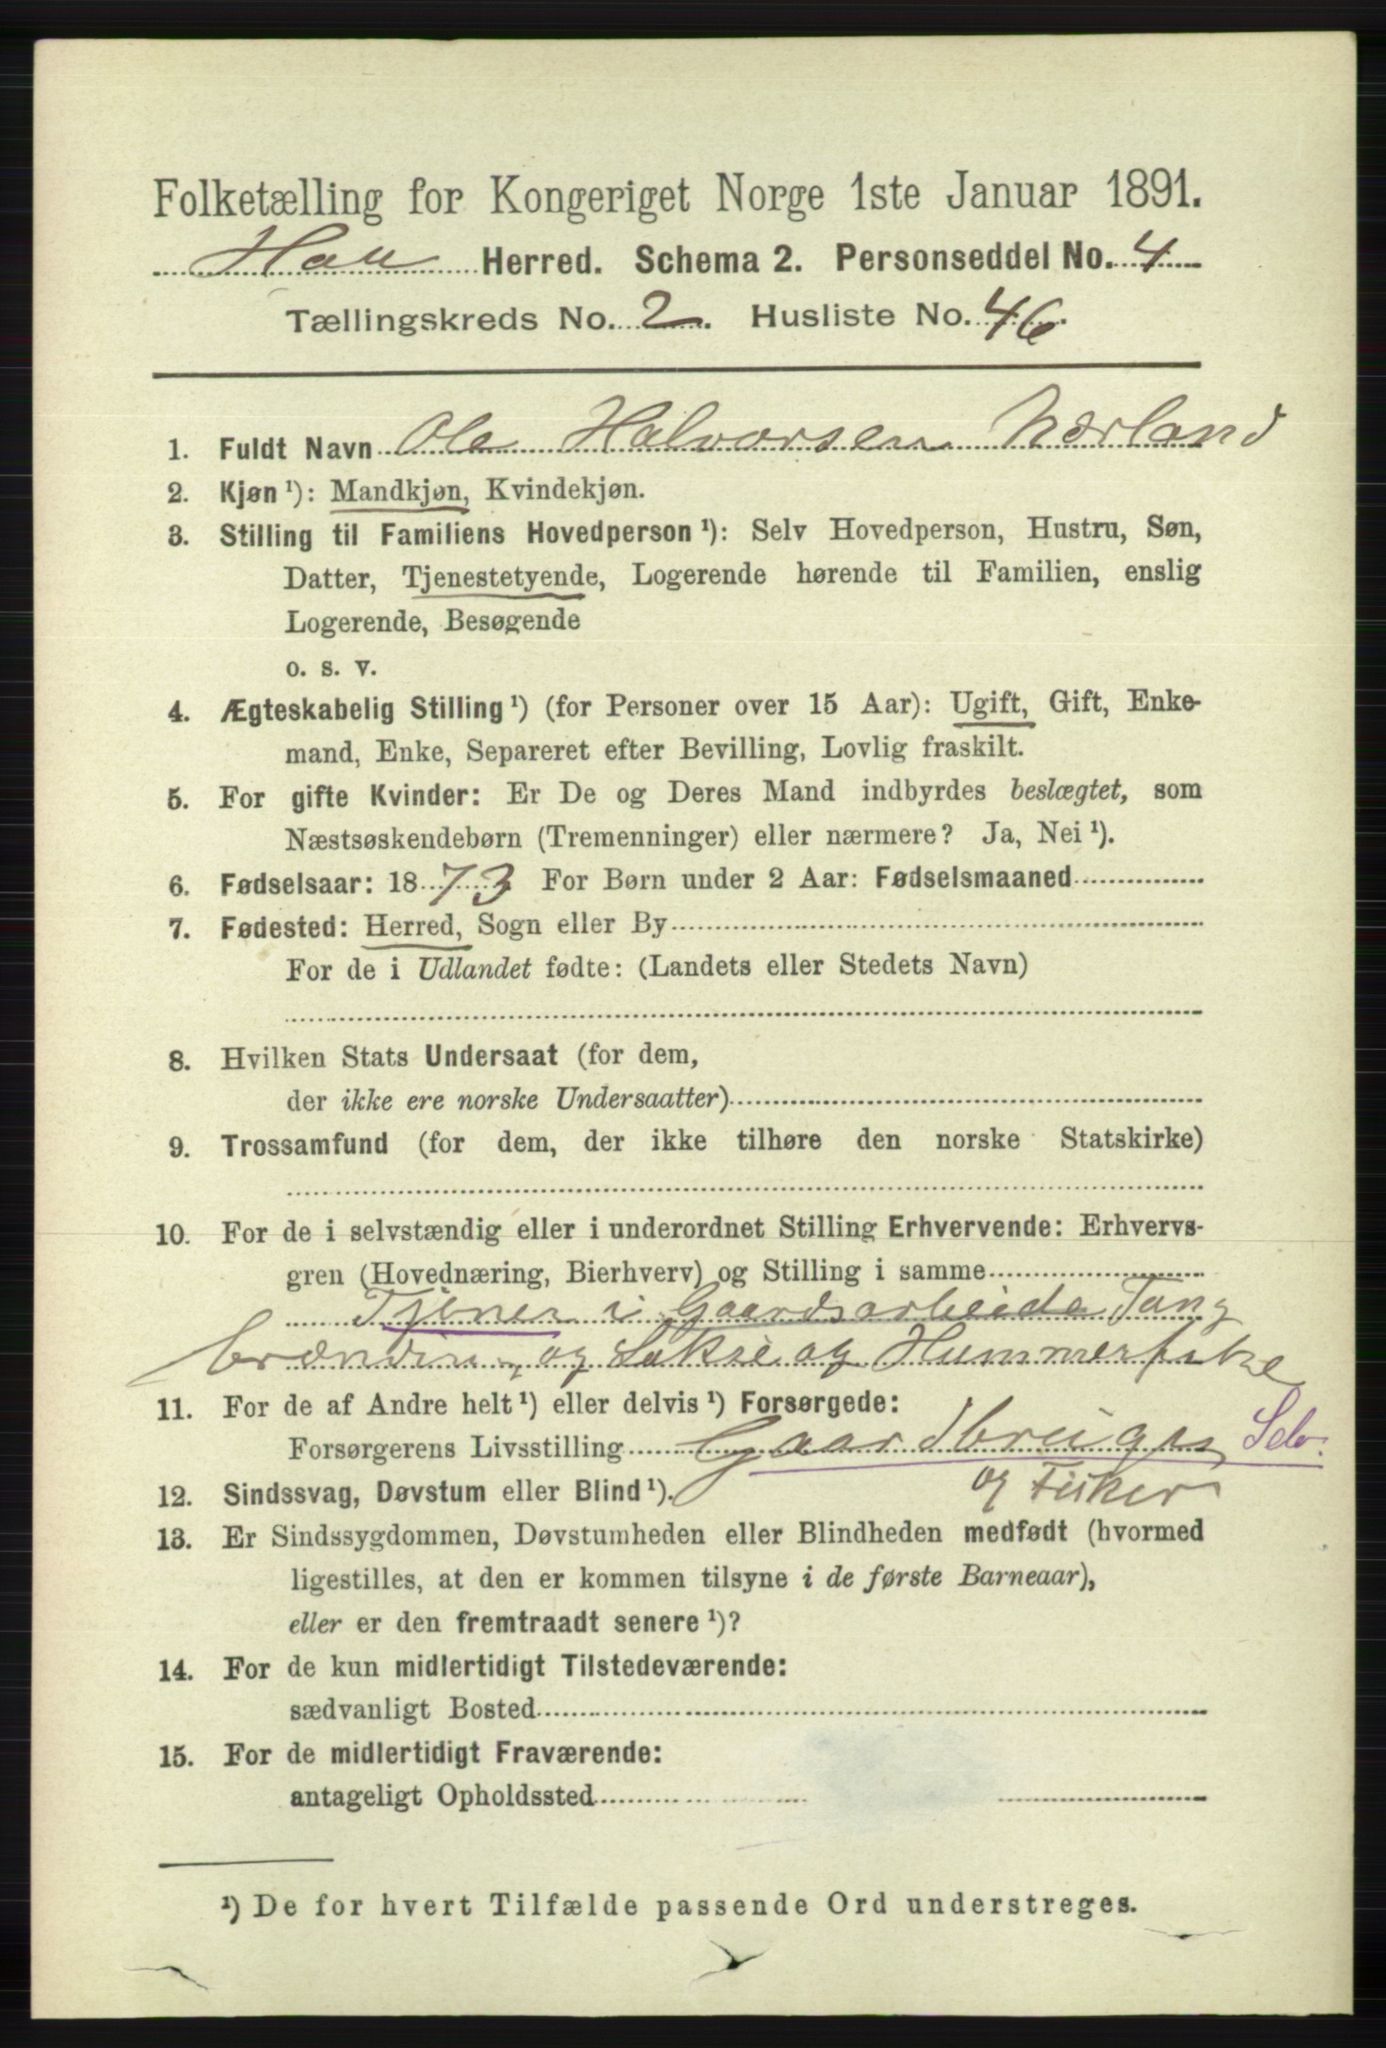 Folketælling for Kongeriget Norge 1ste Januar 1891.
Haa Herred. Schema 2. Personseddel No. 4
Tællingskreds No. 2. Husliste No. 46.
1. Fuldt Navn Ole Halvorsen Nærland
2. Kjøn ¹): Mandkjøn, Kvindekjøn.
3. Stilling til Familiens Hovedperson ¹): Selv Hovedperson, Hustru, Søn,
Datter, Tjenestetyende, Logerende hørende til Familien, enslig
Logerende, Besøgende
o. s. v.
4. Ægteskabelig Stilling ¹) (for Personer over 15 Aar): Ugift, Gift, Enke-
mand, Enke, Separeret efter Bevilling, Lovlig fraskilt.
5. For gifte Kvinder: Er De og Deres Mand indbyrdes beslægtet, som
Næstsøskendebørn (Tremenninger) eller nærmere? Ja, Nei ¹).
6. Fødselsaar: 1873 For Børn under 2 Aar: Fødselsmaaned
7. Fødested: Herred, Sogn eller By
For de i Udlandet fødte: (Landets eller Stedets Navn)
8. Hvilken Stats Undersaat (for dem,
der ikke ere norske Undersaatter)
9. Trossamfund (for dem, der ikke tilhøre den norske Statskirke)
10. For de i selvstændig eller i underordnet Stilling Erhvervende: Erhvervs-
gren (Hovednæring, Bierhverv) og Stilling i samme
Tjener i Gaardsarbeide Tang
brænding og Lakse og Hummerfiske
11. For de af Andre helt ¹) eller delvis ¹) Forsørgede:
Forsørgerens Livsstilling Gaardbruger Selv.
og Fisker
12. Sindssvag, Døvstum eller Blind ¹).
13. Er Sindssygdommen, Døvstumheden eller Blindheden medfødt (hvormed
ligestilles, at den er kommen tilsyne i de første Barneaar),
eller er den fremtraadt senere ¹)?
14. For de kun midlertidigt Tilstedeværende:
sædvanligt Bosted
15. For de midlertidigt Fraværende:
antageligt Opholdssted
¹) De for hvert Tilfælde passende Ord understreges.